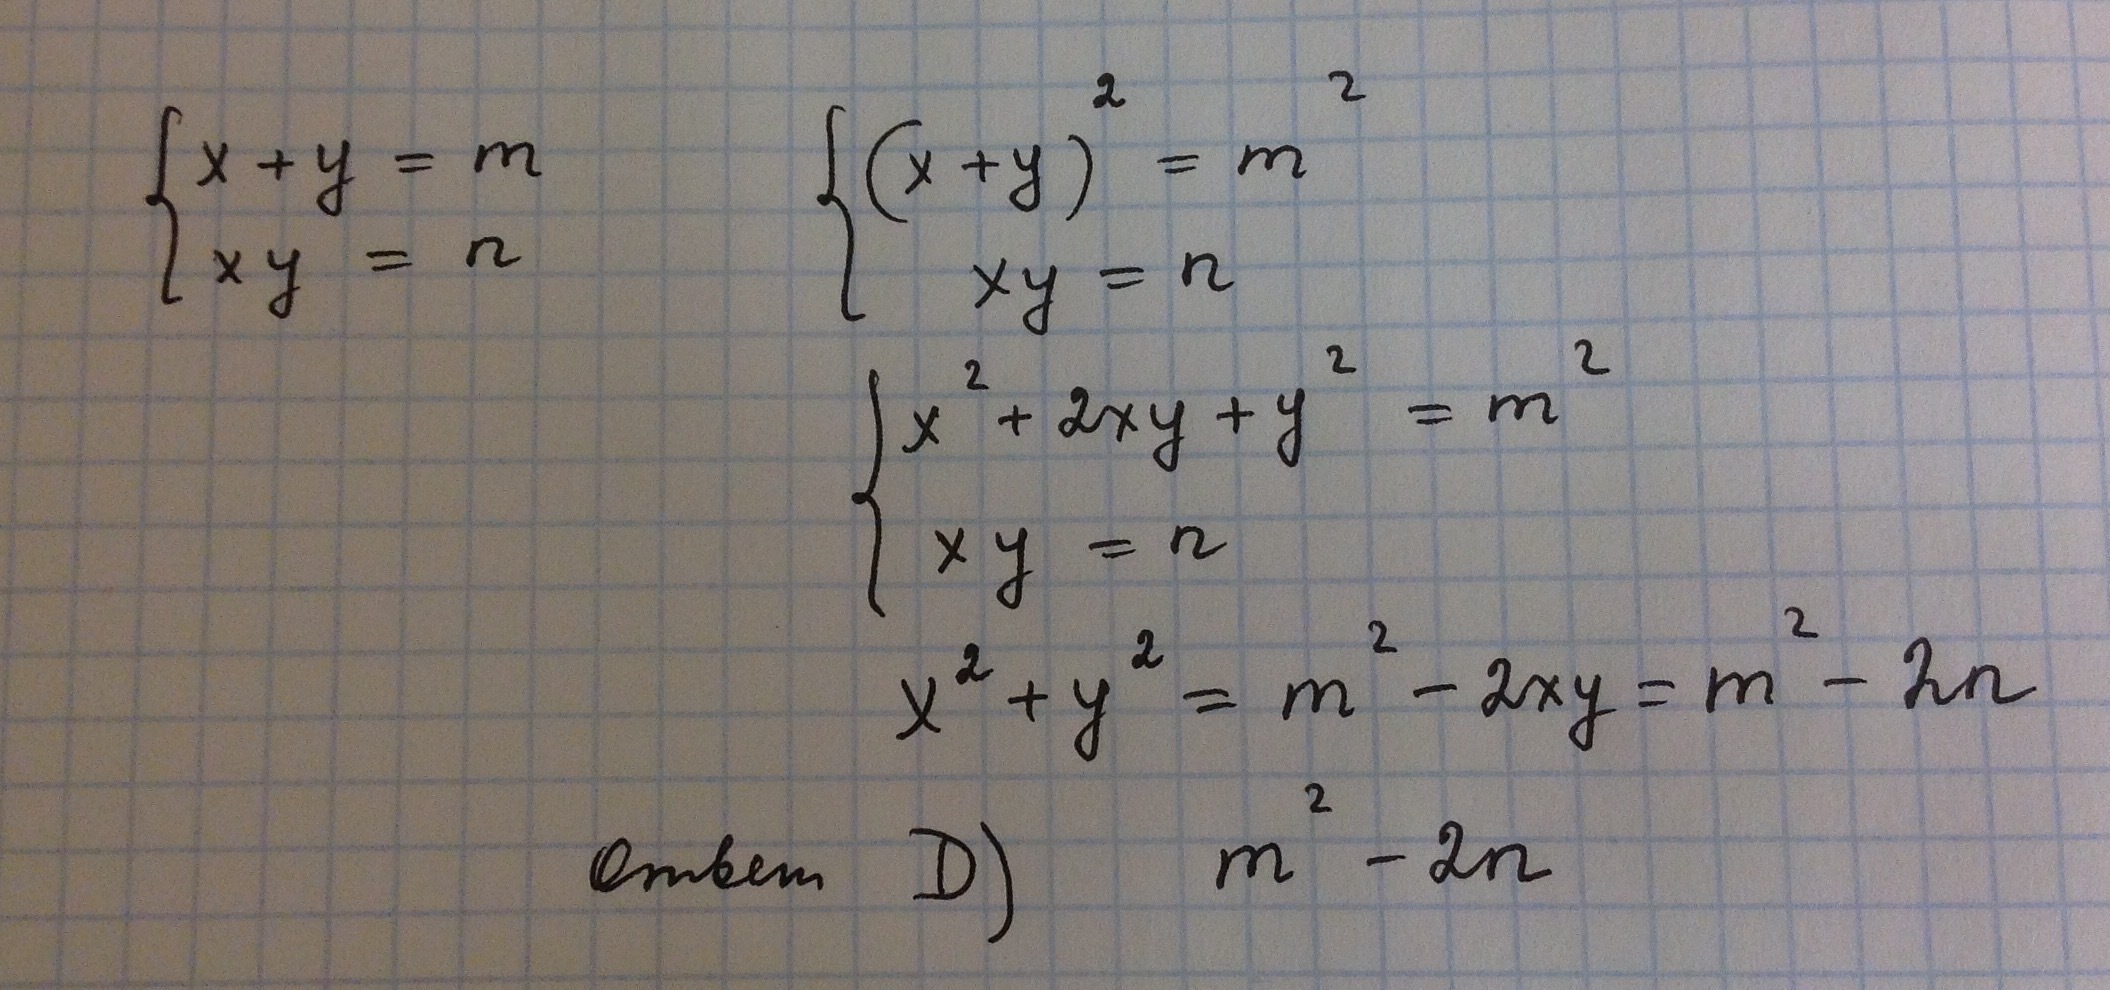 { x + y = m
xy = n
{ (x + y)² = m²
xy = n
{ x² + 2xy + y² = m²
xy = n
x² + y² = m² - 2xy = m² - 2n
Ответ D) m² - 2n